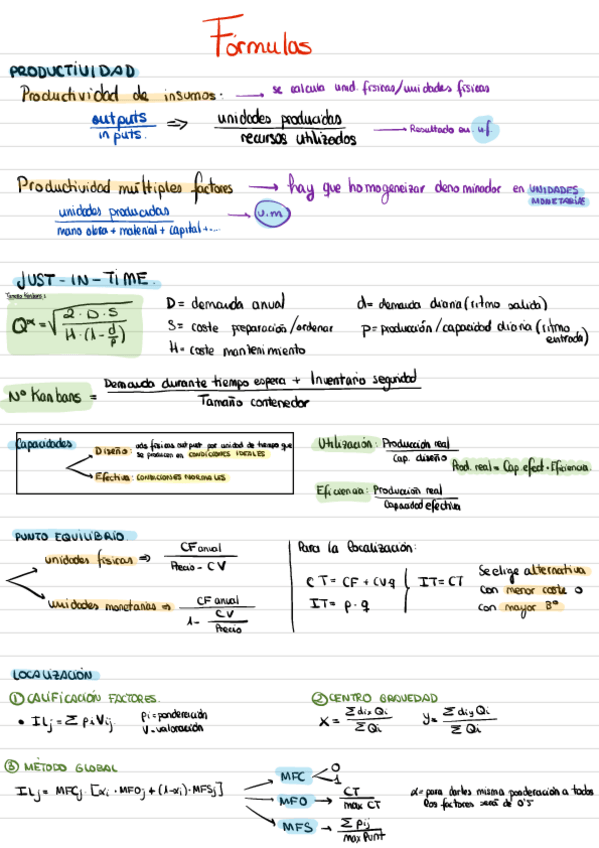 Fórmulas
PRODUCTIVIDAD
Productividad de insumos: → se calcula unid. físicas/unidades físicas
outputs / inputs. ⇒ unidades producidas / recursos utilizados → Resultado en u.f
Productividad múltiples factores → hay que homogeneizar denominador en UNIDADES MONETARIAS
unidades producidas / mano obra + material + capital + ... → u.m
JUST-IN-TIME.
Tamaño Kanbans:
Q* = √(2·D·S / H·(1-d/p))
D = demanda anual
d = demanda diaria (ritmo salida)
S = coste preparación/ordenar
p = producción/capacidad diaria (ritmo entrada)
H = coste mantenimiento
Nº Kanbans = Demanda durante tiempo espera + Inventario seguridad / Tamaño contenedor
Capacidades
Diseño: uds físicas output por unidad de tiempo que
se producen en CONDICIONES IDEALES
Efectiva: CONDICIONES NORMALES
Utilización: Producción real / Cap. diseño
Prod. real = Cap. efect · Eficiencia
Eficiencia: Producción real / Capacidad efectiva
PUNTO EQUILIBRIO.
unidades físicas ⇒ CF anual / Precio - CV
unidades monetarias ⇒ CF anual / 1 - CV / Precio
Para la localización:
CT = CF + CVq
IT = p·q
IT = CT
Se elige alternativa
con menor coste o
con mayor Bº
LOCALIZACIÓN
① CALIFICACIÓN FACTORES.
• ILj = Σ pi Vij
pi = ponderación
V = valoración
② CENTRO GRAVEDAD
X = Σdix Qi / ΣQi
Y = Σdiy Qi / ΣQi
③ MÉTODO GLOBAL
ILj = MFCj · [αi · MFOj + (1-αi) · MFSj]
MFC → 0
1
MFO → CT / max CT
MFS → Σ pij / max Punt
α = para darles misma ponderación a todos
los factores será de 0'5